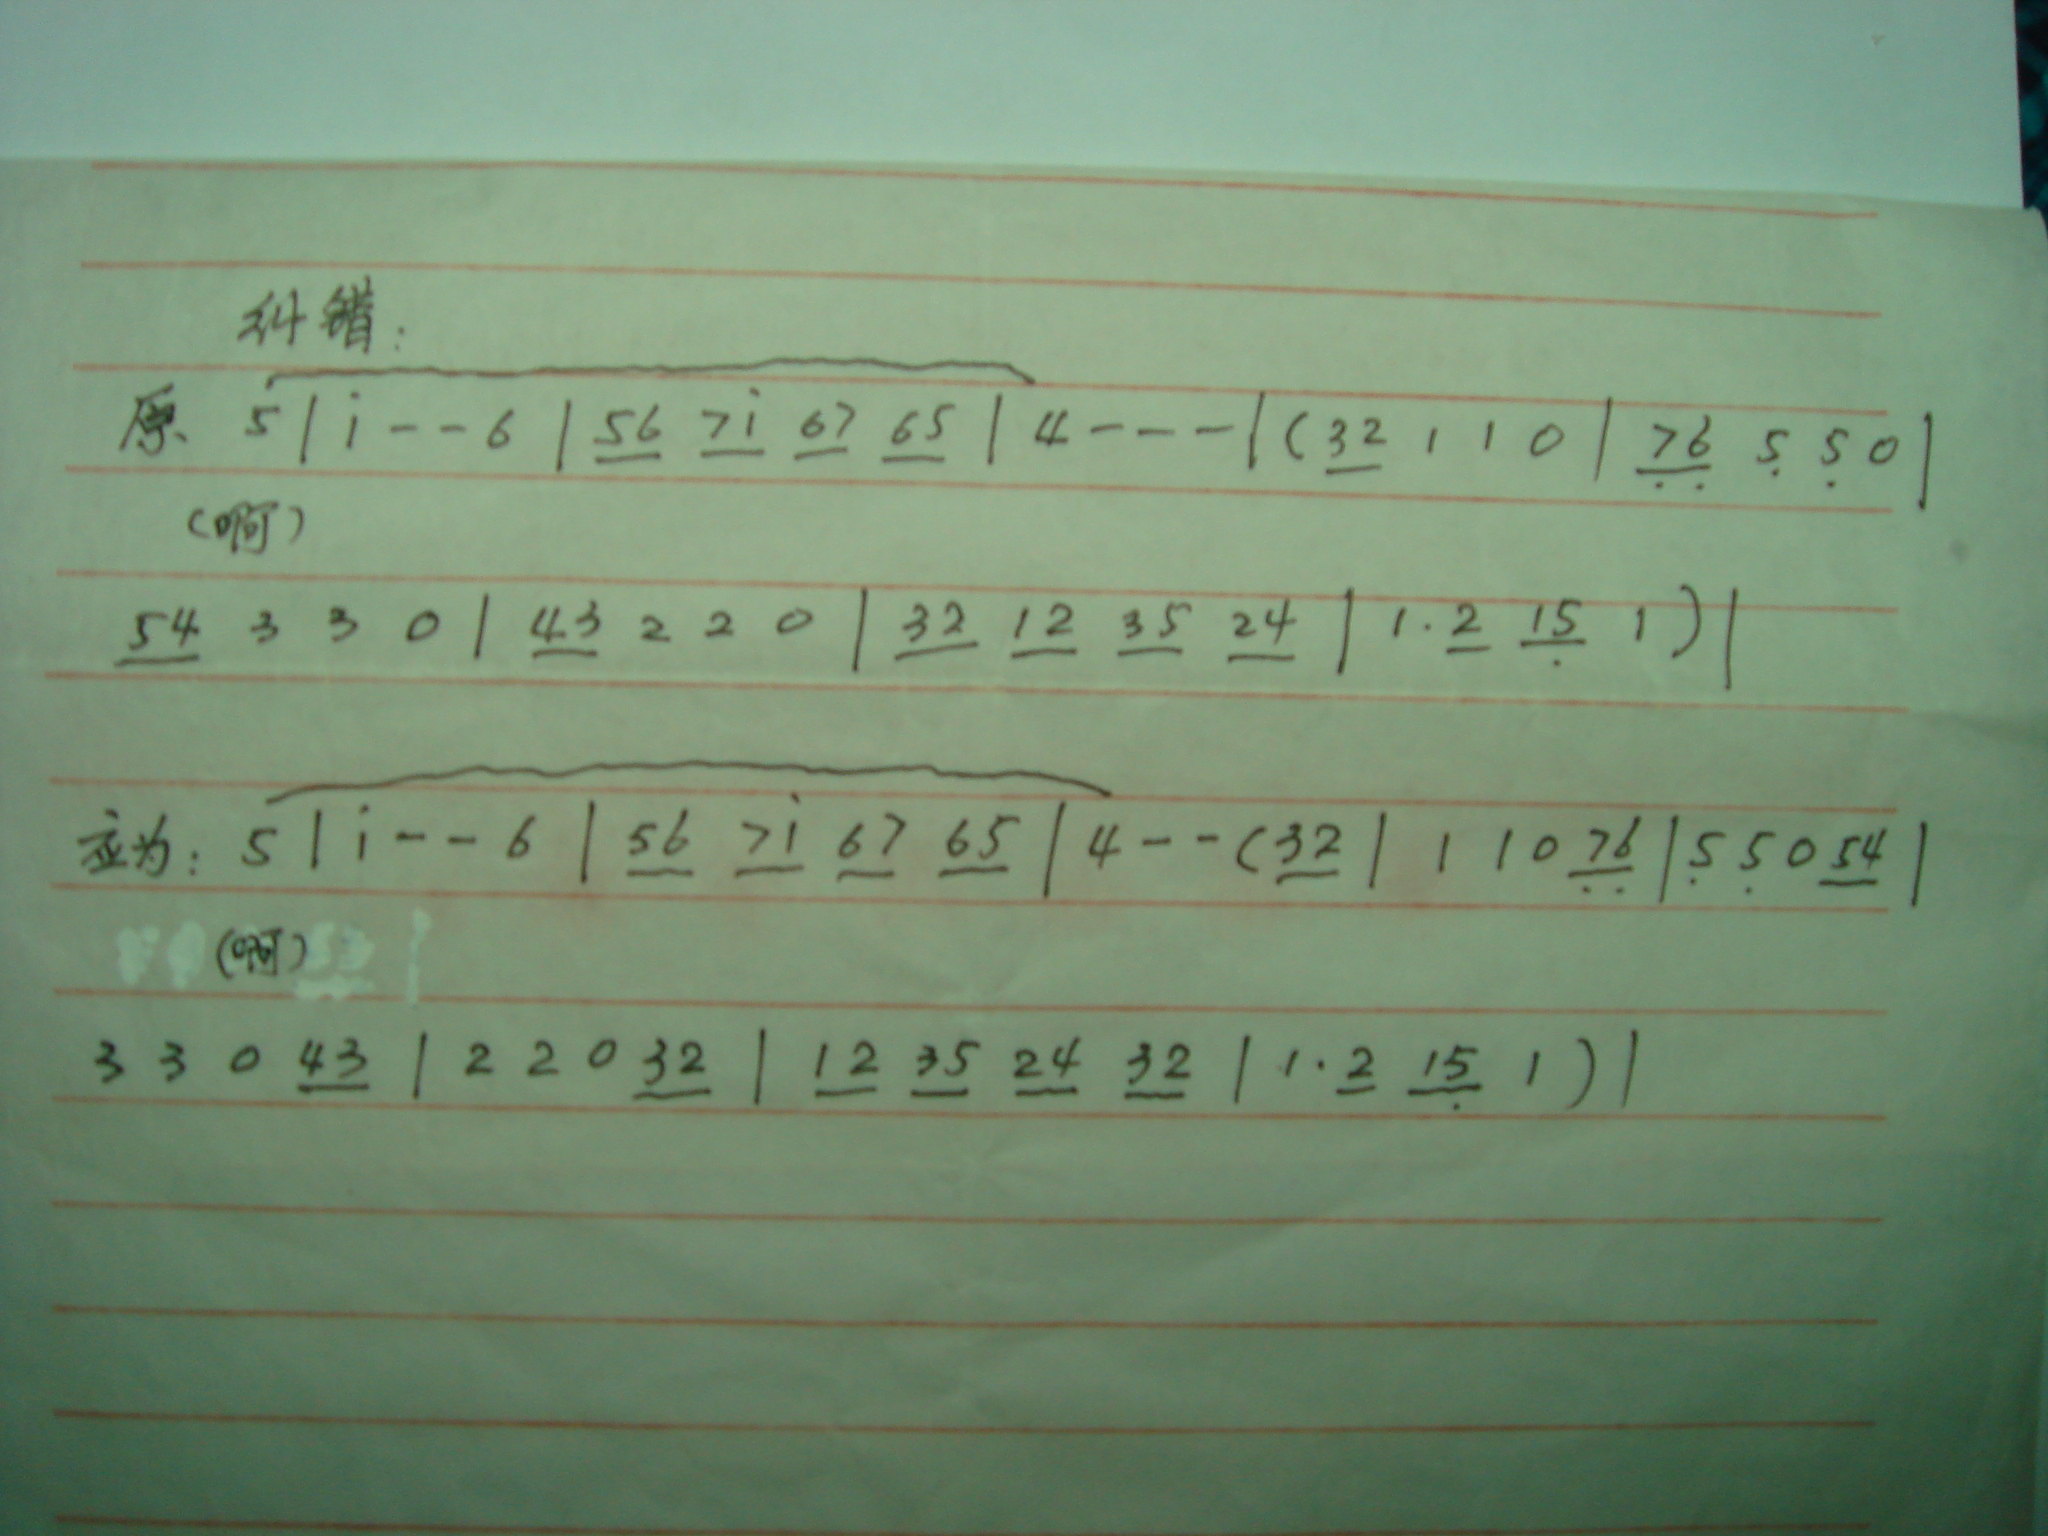 纠错:
原 5 | i - - 6 | 56 7i 67 65 | 4 - - - | ( 32 1 1 0 | 76 5 5 0 |
(啊)
54 3 3 0 | 43 2 2 0 | 32 12 35 24 | 1 . 2 15 1 ) |
应为: 5 | i - - 6 | 56 7i 67 65 | 4 - - ( 32 | 1 1 0 76 | 5 5 0 54 |
(啊)
3 3 0 43 | 2 2 0 32 | 12 35 24 32 | 1 . 2 15 1 ) |